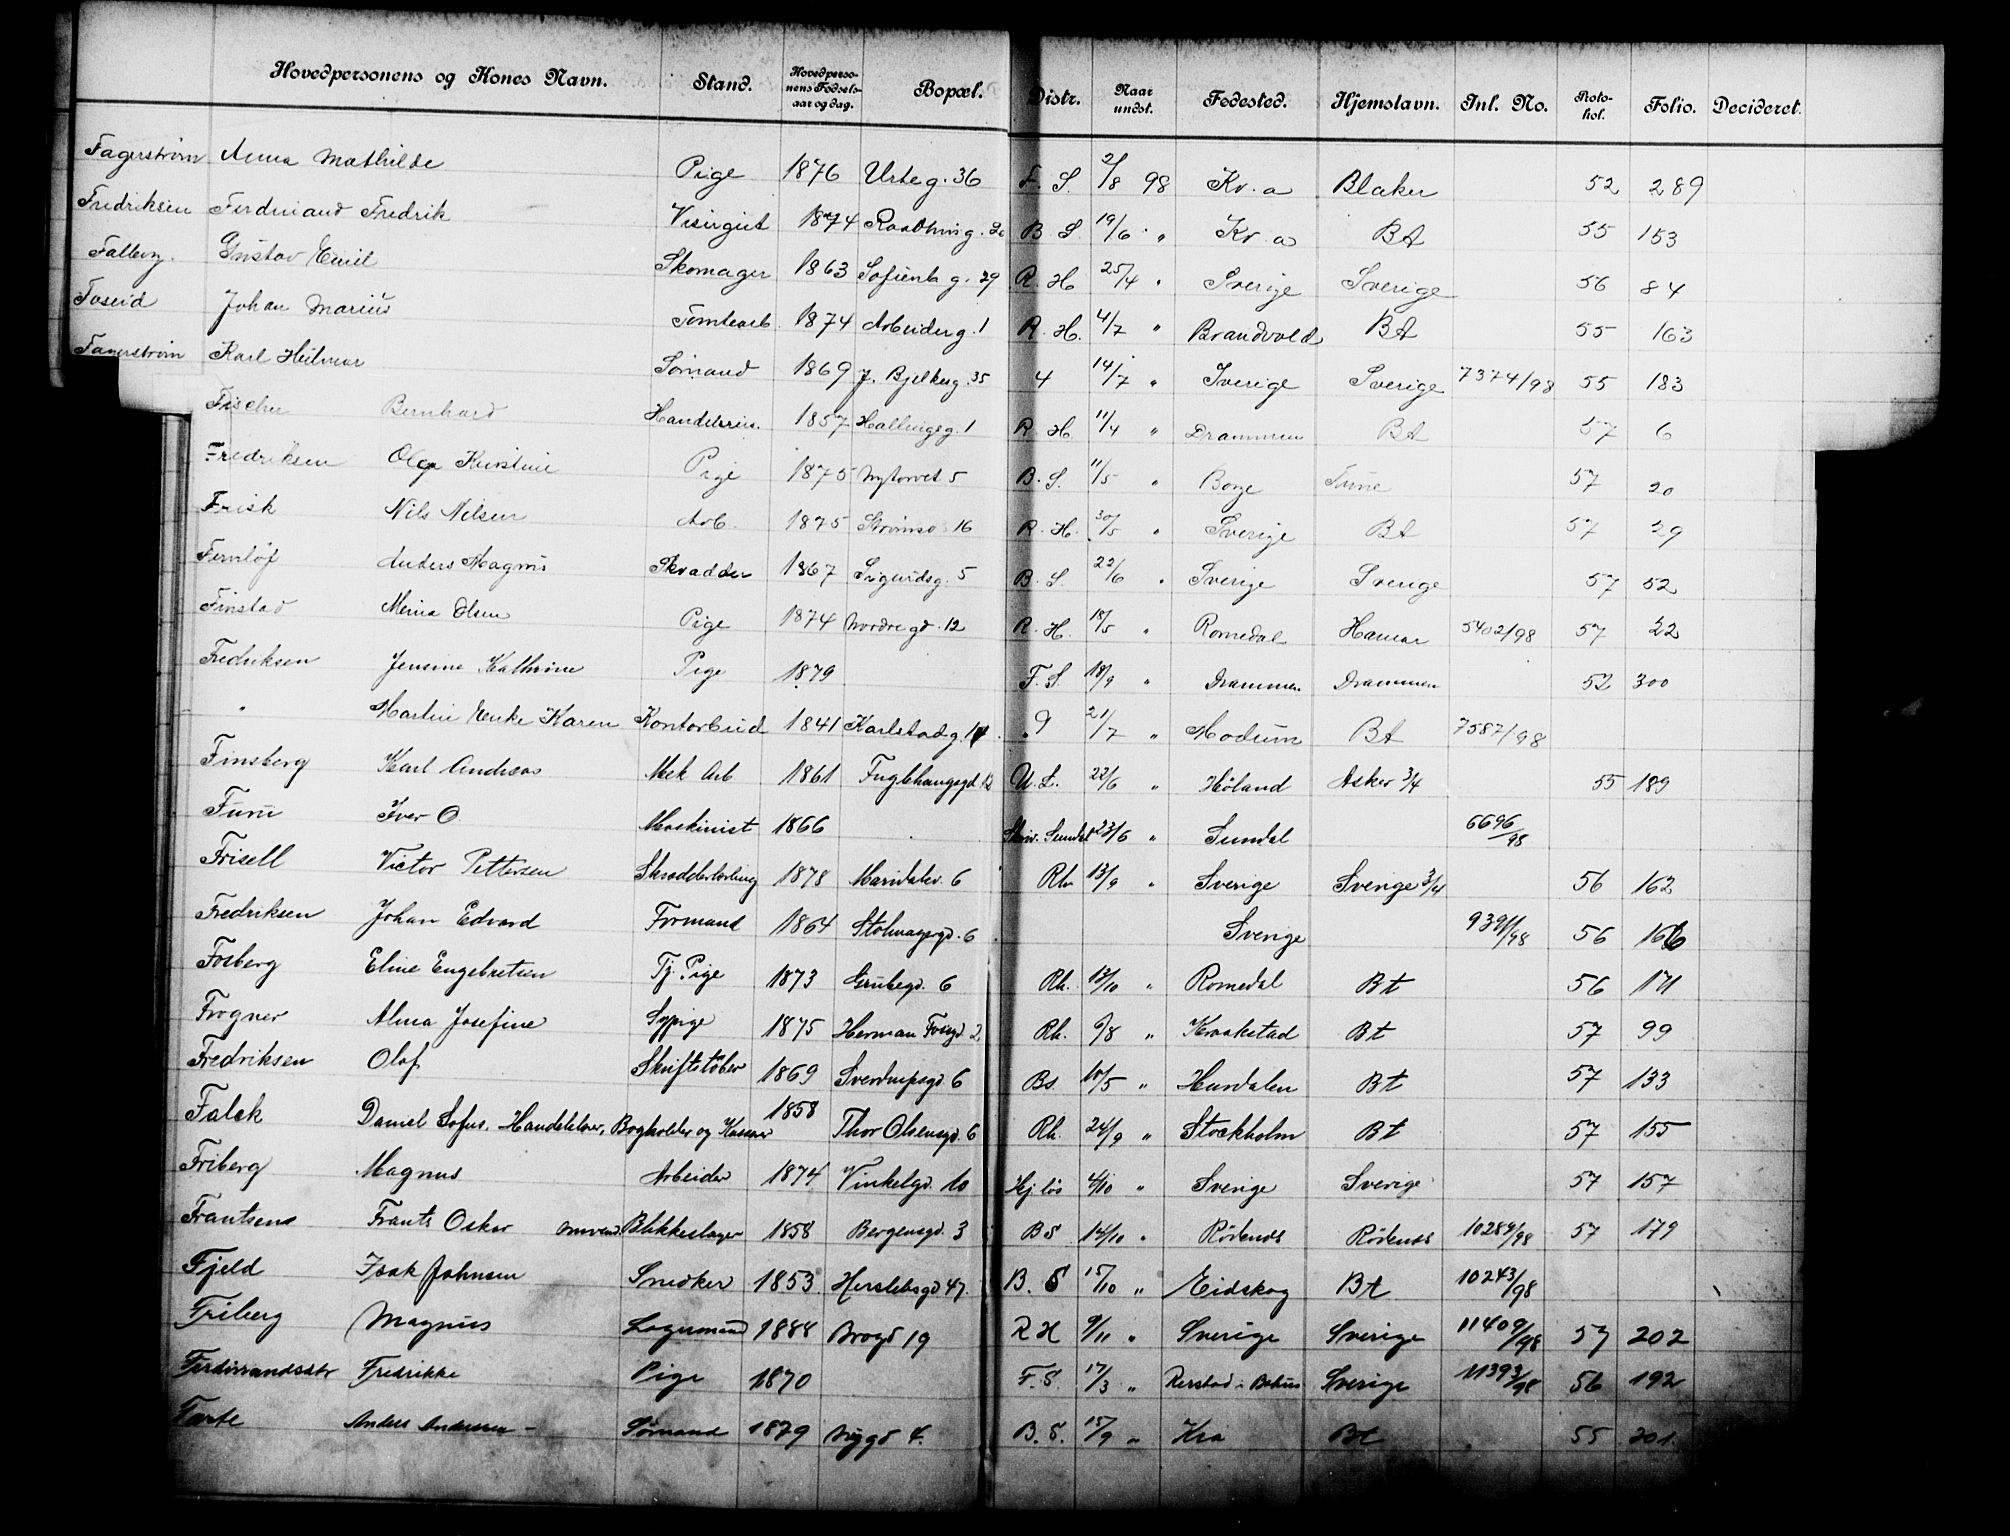 Hovedpersonens og Kones Navn. Stand. Hovedperso-nens Fødsels-aar og dag. Bopæl. Distr. Naar undst. Fødested. Hjemstavn. Inl. No. Proto-kol. Folio. Decideret.
Fagerstrøm Anna Mathilde Pige 1876 Urteg. 36 F. S. 2/8 98 Kr.a Blaker 52 289
Fredriksen Ferdinand Fredrik Visirgut 1874 B S. 19/6 " Kr.a Bt 55 153
Falberg. Gustav Emil Skomager 1863 Sofienb g. 29 R. H. 25/4 " Sverige Sverige 56 84
Foseid Johan Marius Tomtearb. 1874 Arbeiderg. 1 R. H. 4/7 " Brandvold Bt 55 163
Fagerstrøm Karl Hilmar Sømand 1869 J. Bjelkesg. 35 4 14/7 " Sverige Sverige 7374/98 55 183
Fischer Bernhard Handelsreis. 1857 Hallingsg. 1 R. H. 11/4 " Drammen Bt 57 6
Fredriksen Olga Kristine Pige 1875 Nytorvet 5 B. S. 11/5 " Borge Tune 57 20
Frisk Nils Nilsen Arb. 1875 Strømsv. 16 R. H. 30/5 " Sverige Bt 57 29
Fernløf Anders Magnus Skradder 1867 Sigurdsg. 5 B. S. 22/6 " Sverige Sverige 57 52
Finstad Mina Olsen Pige 1874 Nordregd. 12 R. H. 18/5 " Romedal Hamar 5402/98 57 22
Fredriksen Jensine Kathrine Pige 1879 F. S. 18/9 " Drammen Drammen 52 300
" Martin Enke Karen Kontorbud 1841 Karlstadg. 9 21/7 " Modum Bt 7587/98
Finsberg Karl Andreas Mek Arb 1861 Fuglehaugsgd 12 U. L. 22/6 " Høland Asker 3/4 55 189
Furu Iver O. Maskinist 1866 Skriv. Sundal 23/6 " Sundal 6696/98
Frisell Victor Pettersen Skrædderlærling 1878 Maridalsv. 6 Rh. 13/9 " Sverige Sverige 3/4 56 162
Fredriksen Johan Edvard Formand 1864 Stolmagergd. 6 Sverige 9391/98 56 166
Fosberg Eline Engebretsen Tj. Pige 1873 Grubegd. 6 Rh. 13/10 " Romedal Bt 56 171
Frogner Alma Josefine Sypige 1875 Herman Fossgd 2 Rh. 6/8 " Kraakstad Bt 57 99
Fredriksen Olaf Skriftstøber 1869 Sverdrupsgd 6 Bs. 10/5 " Hurdalen Bt 57 133
Falck Daniel Sofus. Handelslær., Bogholder og Kasserer 1858 Thor Olsensgd. 6 Rh. 24/9 " Stockholm Bt 57 155
Friberg Magnus Arbeider 1874 Vinkelgd. 10 Hj. løs 4/10 " Sverige Sverige 57 157
Frantsens Frants Oskar Blikkeslager 1858 Bergensgd. 3 BS 14/10 " Rødenes Rødenes 10284/98 57 179
Fjeld Isak Johnsen Snedker 1853 Herslebsgd 47. B. S 15/10 " Eidskog Bt 10243/98
Friberg Magnus Lagermand 1888 Brogd 19 R H 9/11 " Sverige Sverige 11409/98 57 202
Ferdinandsdtr Fredrikke Pige 1870 F. S. 17/3 " Sverige 11393/98 56 192
Anders Andersen - Sømand 1879 Nygd 4. B. S. 15/9 " Kra Bt 55 201.